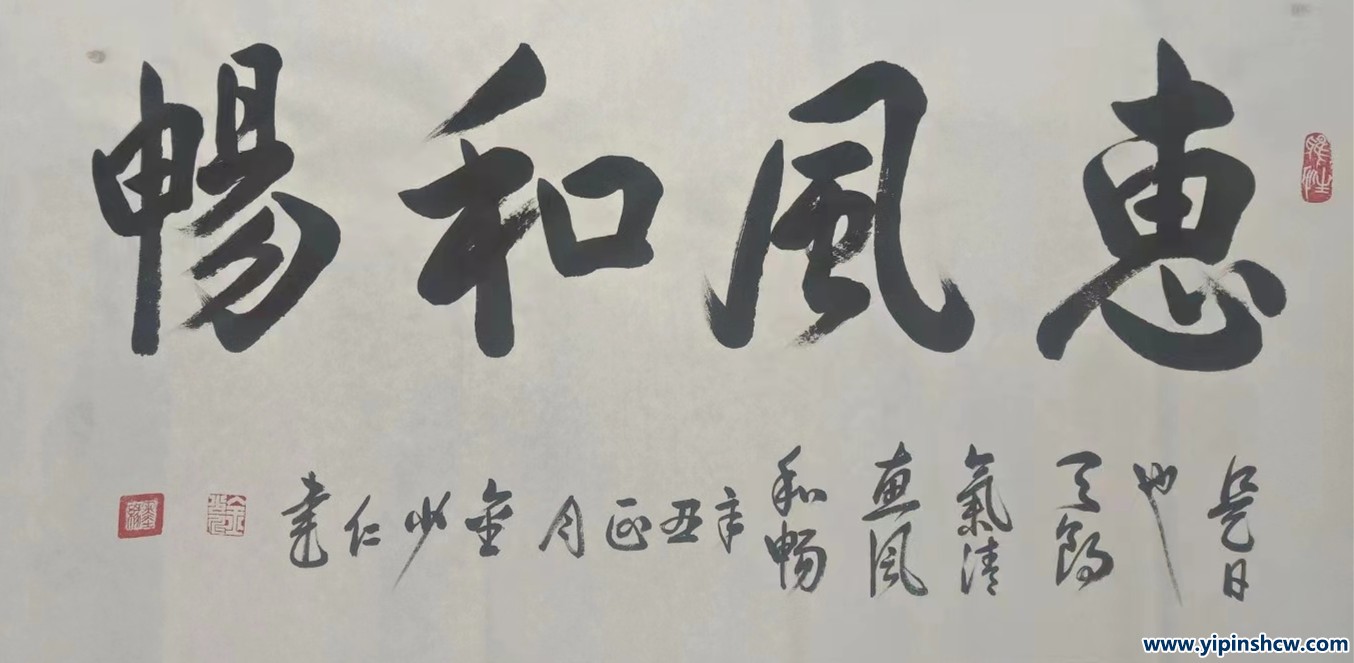 惠風和暢
是日
也
天朗
氣清
惠風
和暢
辛丑正月金少仁
www.yipinshcw.com